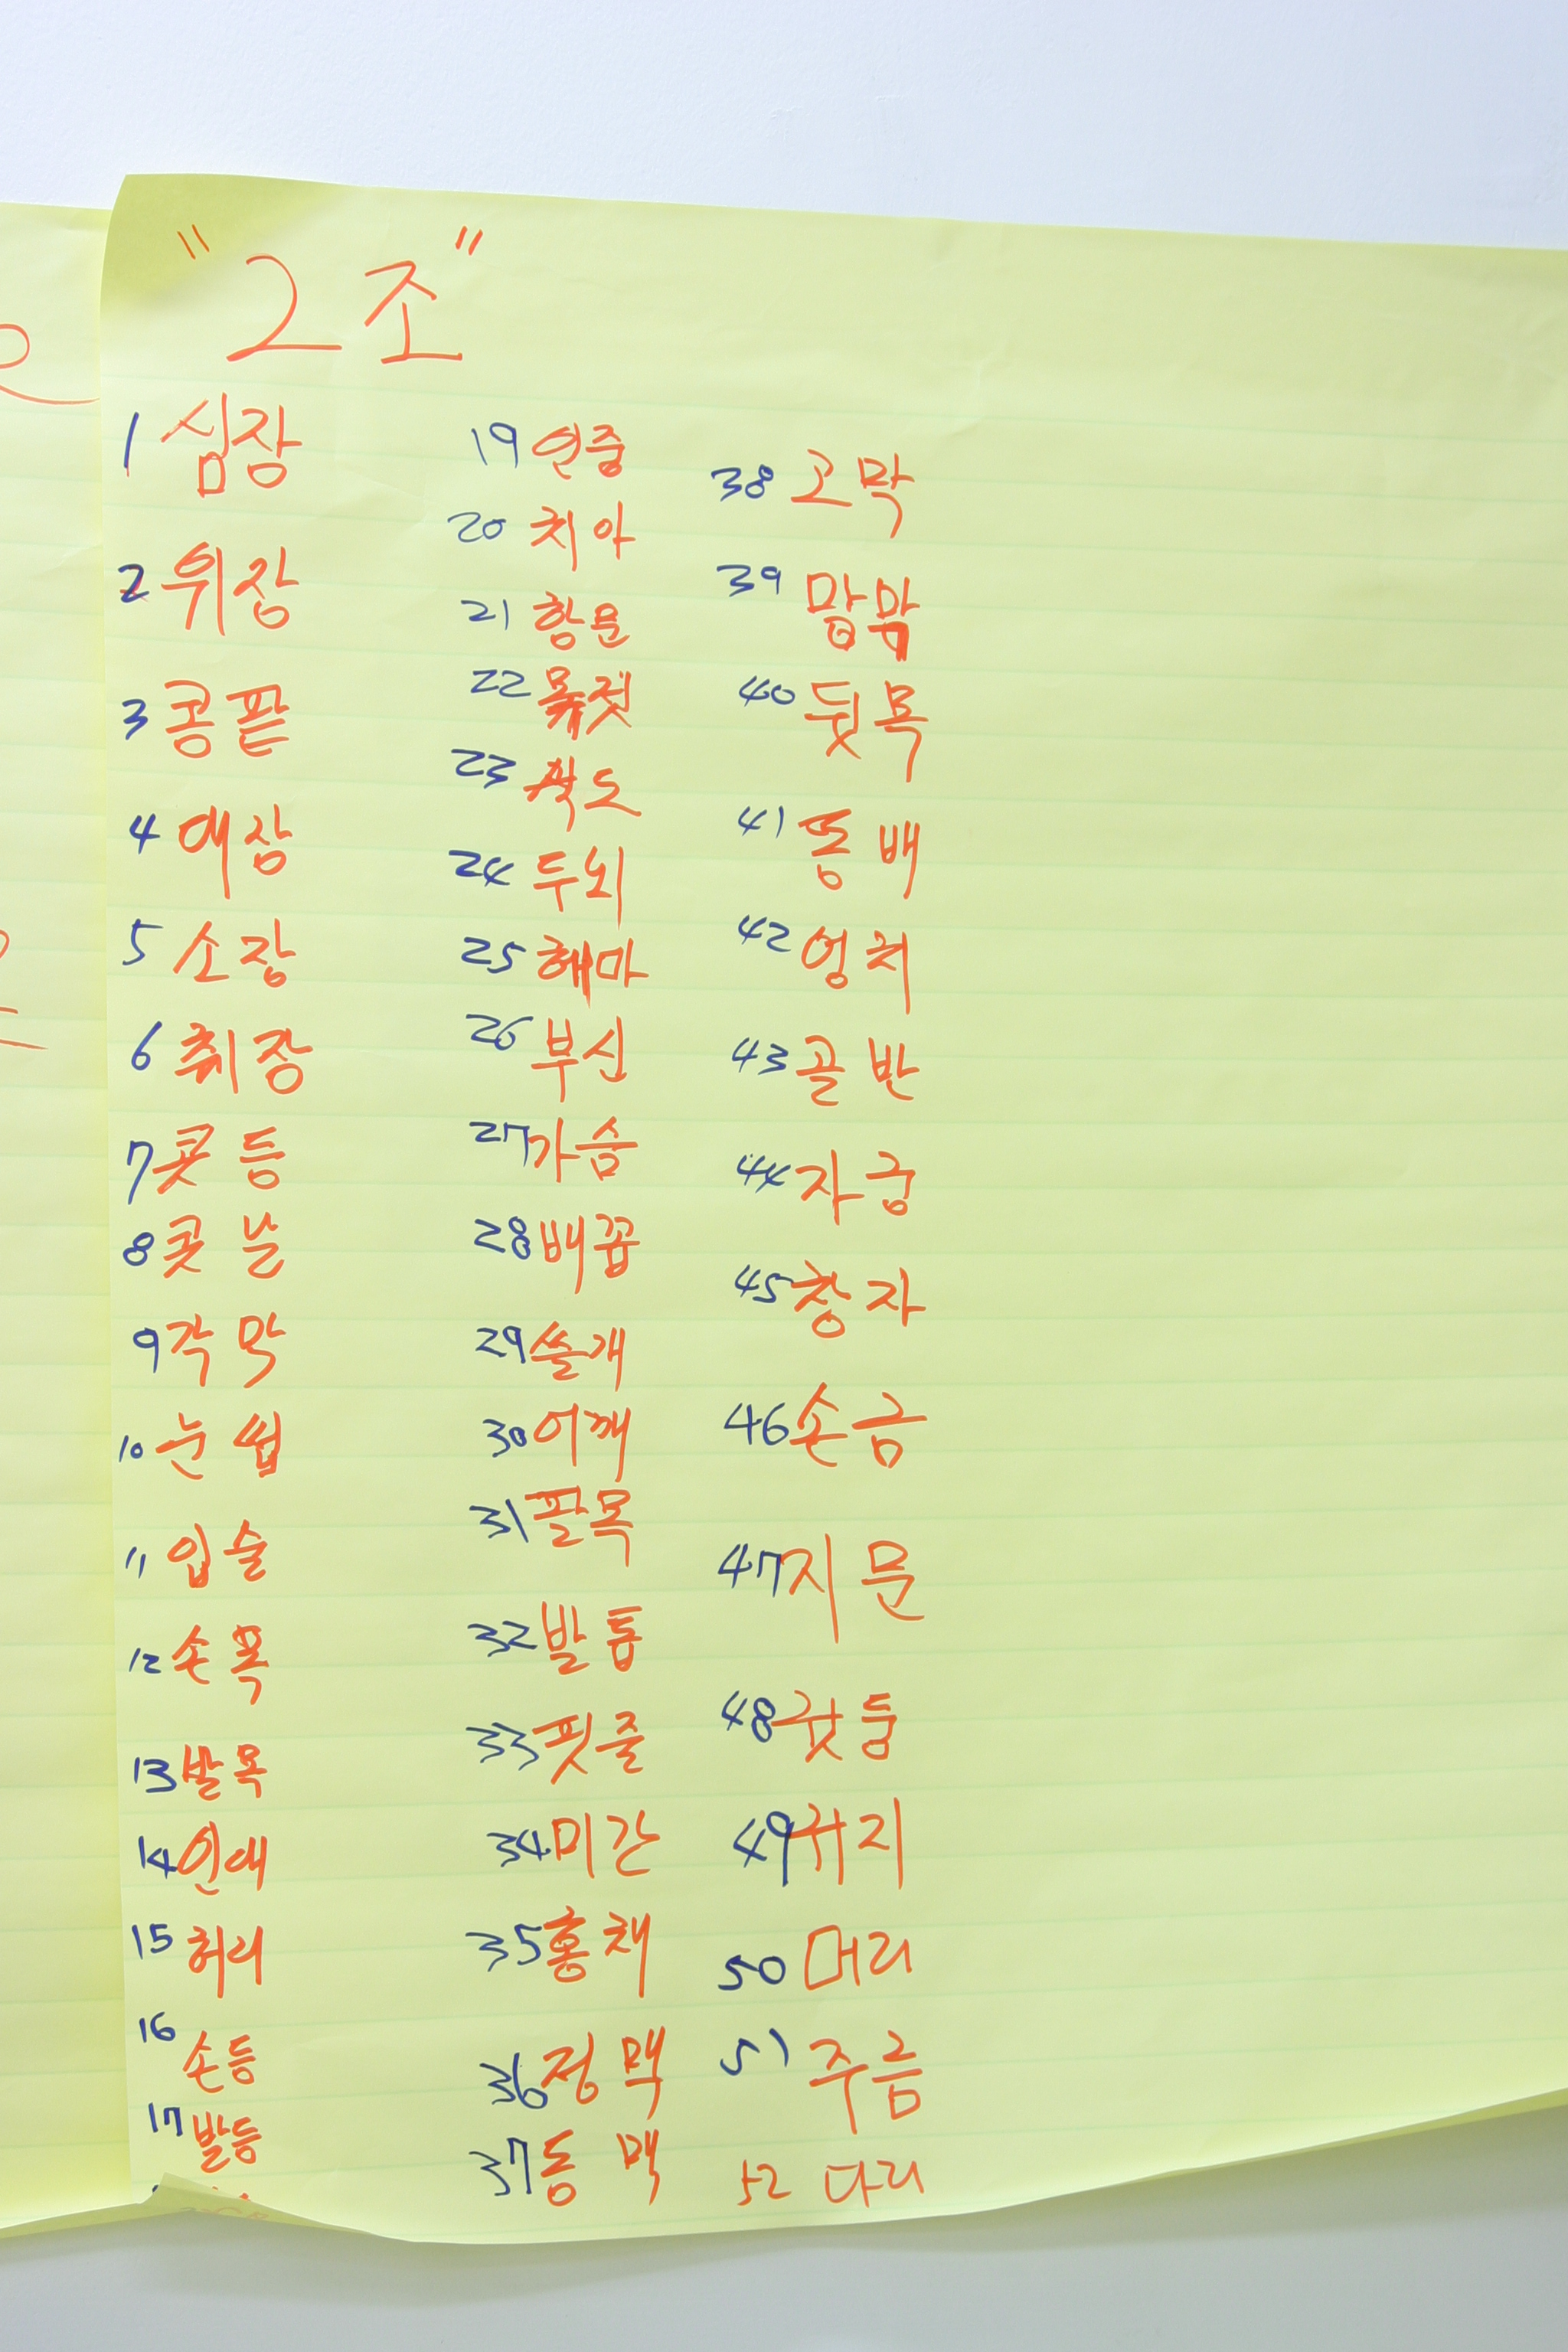 "2조"
1 심장
2 위장
3 콩팥
4 애장
5 소장
6 췌장
7 콧등
8 콧날
9 각막
10 눈썹
11 입술
12 손목
13 발목
14 인대
15 허리
16 손등
17 발등
19 인중
20 치아
21 항문
22 목젖
23 식도
24 두뇌
25 해마
26 부신
27 가슴
28 배꼽
29 쓸개
30 어깨
31 팔목
32 발톱
33 핏줄
34 미간
35 홍채
36 정맥
37 동맥
38 고막
39 망막
40 뒷목
41 똥배
42 엉치
43 골반
44 자궁
45 창자
46 손금
47 지문
48 귓등
49 귀지
50 머리
51 주름
52 다리